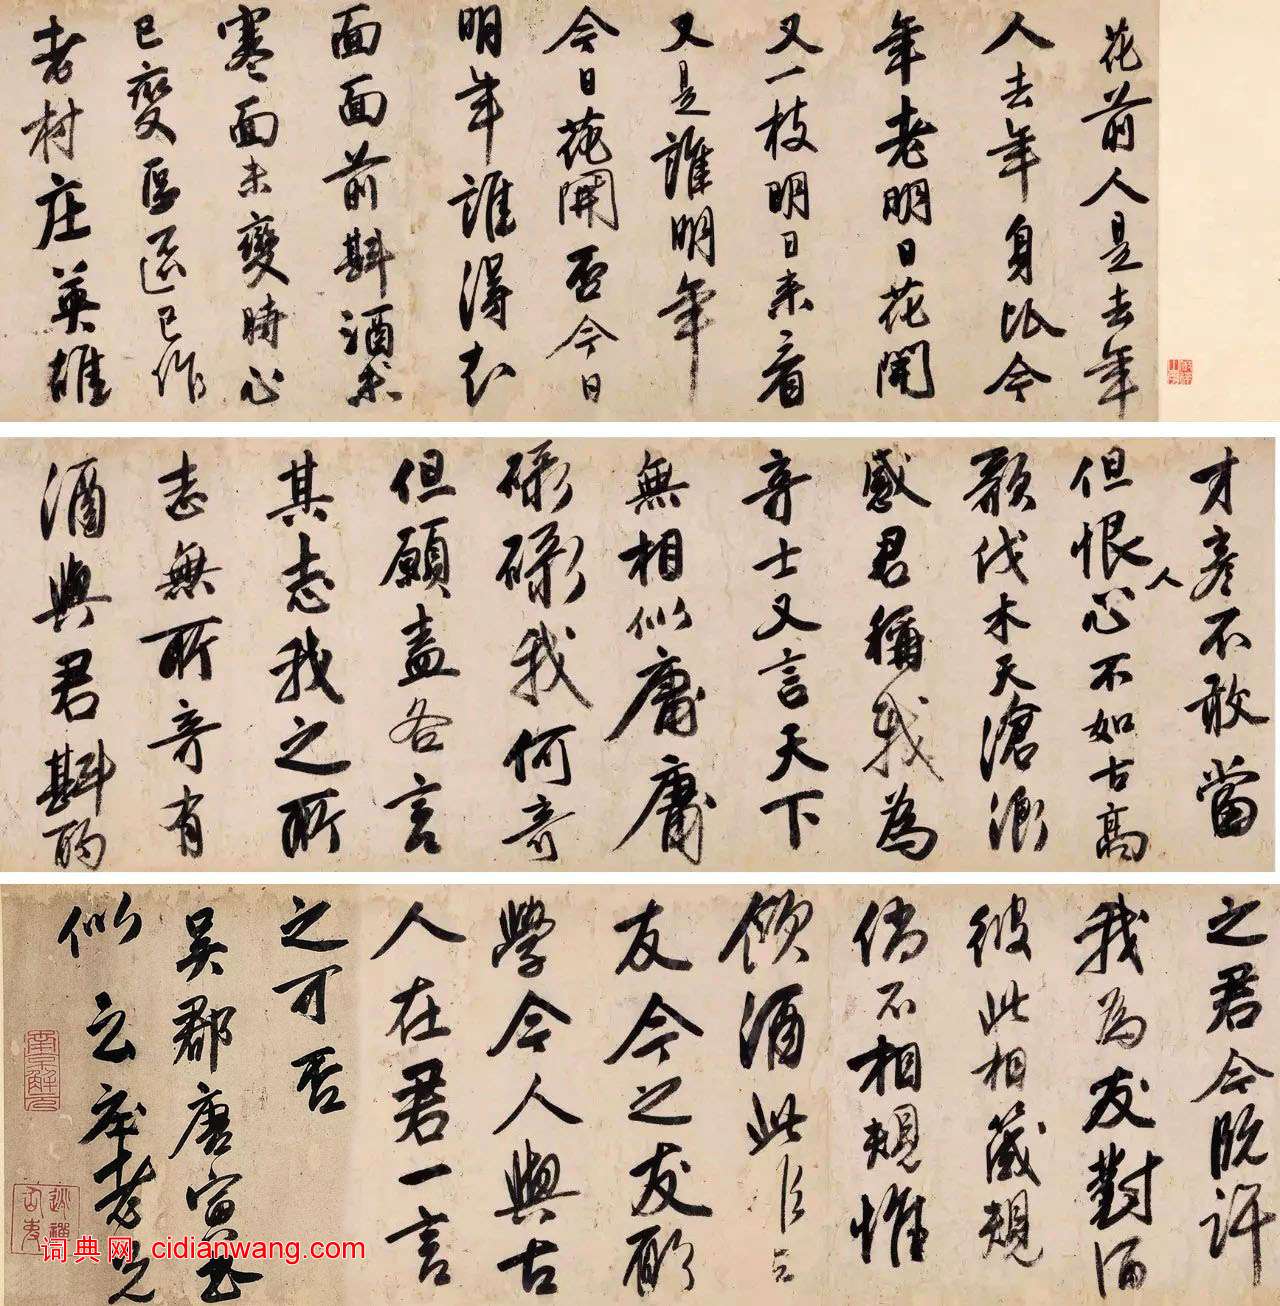 花前人是去年
人去年身比今
年老明日花開
又一枝明日来看
又是誰明年
今日花開否今日
明年誰得知
面面前斟酒酒未
寒面未變時心
已變區區已作
老村庄英雄
才彥不敢當
但恨人心不如古高
歌伐木天滄浪
感君稱我為
奇士又言天下
無相似庸庸
碌碌我何奇
但願盍各言
其志我之所
志無所奇有
酒與君斟酌
之君今既許
我為友對酒
彼此相箴規
倘不相規惟
飲酒此
友今之友所
學今人與古
人在君一言
之可否
吳郡唐寅書
似雲庄老兄
南京解元
逃禪仙吏
词典网 cidianwang.com